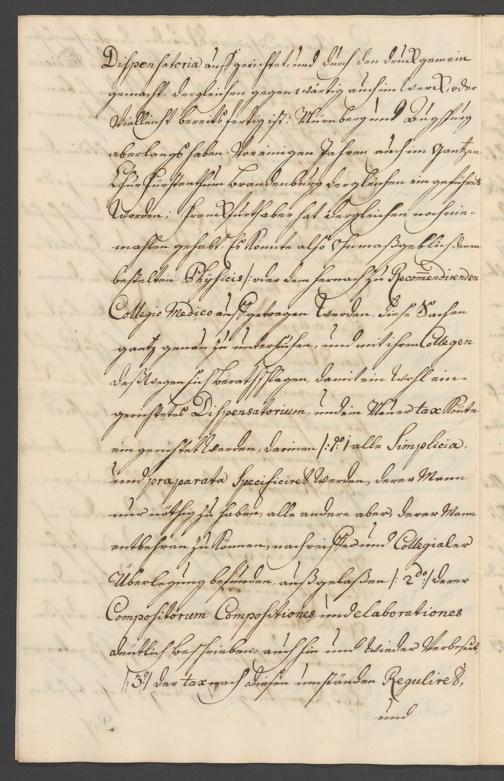 Dispensatoria auffgerichtet, und durch den druck gemein
gemacht, dergleichen gegenwärtig auch im werck, oder
Vielleicht bereits fertig ist. Nürnberg und Augspurg
aber längst haben. Vor einigen Jahren auch im gantzen
Churfürstenthum Brandenburg dergleichen eingeführet
worden. Franckfurth aber hat dergleichen noch nie-
mahlen gehabt. Es könnte also Ohnmaßgeblich denen
bestelten Physicis /: oder dem hernach zu Recom̄endirenden
Collegio Medico auffgetragen werden, diese Sachen
gantz genau zu untersuchen, und mit ihren Collegen
deßwegen sich berathschlagen, damit ein wohl ein-
gerichtetes Dispensatorium, und ein Neuer tax könte
eingerichtet werden, darinnen /: 1º :/ alle Simplicia,
und præparata Specificiret werden, derer Mann
nur nöthig zu haben, alle andere aber, derer Mann
entbehren zu können, nach reiffer und Collegialer
Überlegung befunden, außgelaßen /: 2dº :/ derer
Compositorum Compositiones und elaborationes
deutlich beschrieben, auch hin und wieder Verbeßert,
/: 3º :/ der tax nach diesen umständen Reguliret,
und